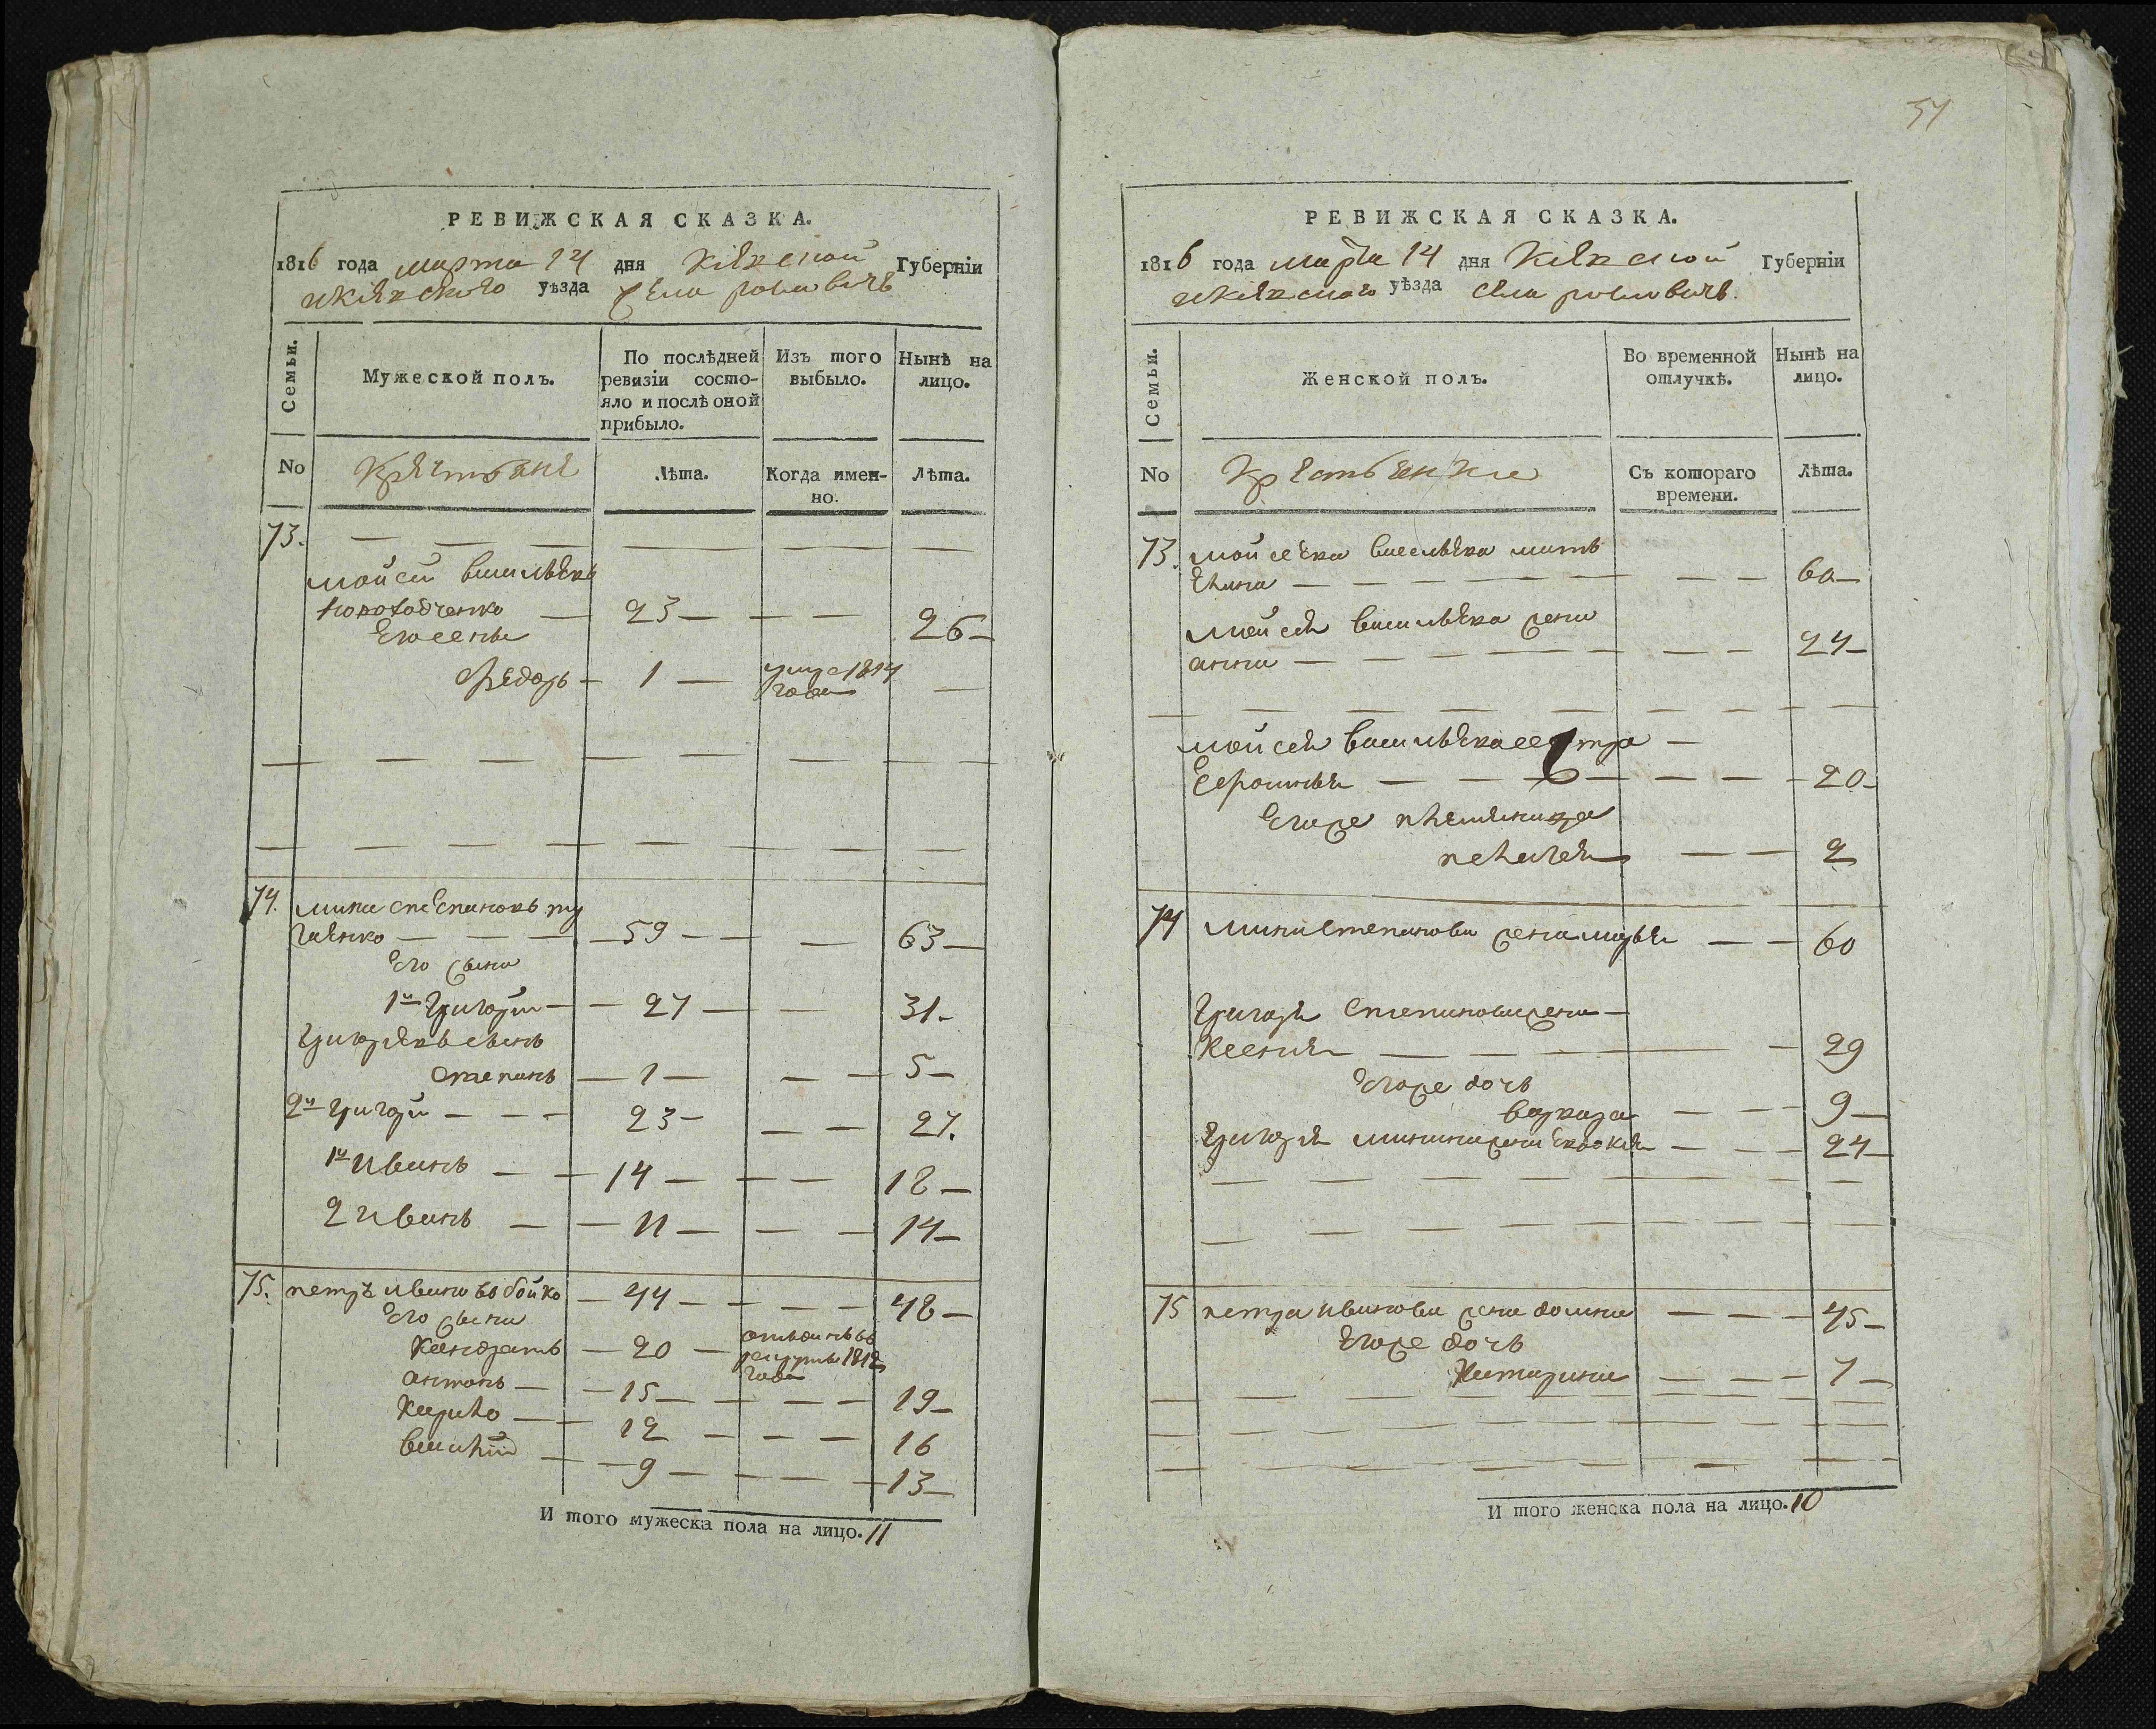 РЕВИЖСКАЯ СКАЗКА.
1816 года марта 14 дня Киевской Губерніи
и Киевского уѣзда села
Семьи.
Мужеской полъ.
По послѣдней ревизіи состояло и послѣ оной прибыло.
Изъ того выбыло.
Нынѣ на лицо.
No
Крестьяне
Лѣта.
Когда именно.
Лѣта.
73.
мойсей васильевъ
23 26
Федоръ 1 1814 года
74. мина степановъ
59 63
Его сыни
1й григорий 27 31
григориевъ сынъ
степанъ 1 5
2й григорий 23 27.
1й иванъ 14 18
2 иванъ 11 14
75. петръ ивановъ бойко 44 48
Его сыни
кандратъ 20 отъданъ въ рекруты 1812 года
антонъ 15 19
кирило 12 16
василій 9 13
И того мужеска пола на лицо. 11
54
РЕВИЖСКАЯ СКАЗКА.
1816 года марта 14 дня Киевской Губерніи
и Киевского уѣзда села
Семьи.
Женской полъ.
Во временной отлучкѣ.
Нынѣ на лицо.
No
Крестьянки
Съ котораго времени.
Лѣта.
73. мойсеева васильева мать
60
мойсея васильева жена
анна 24
мойсея васильева сестра
20
племяница
пелагея 2
74 мины степанова жена марья 60
григория степанова жена
ксения 29
дочь
варвара 9
григория жена 24
75 петра иванова жена домна 45
дочь
катарина 7
И того женска пола на лицо. 10